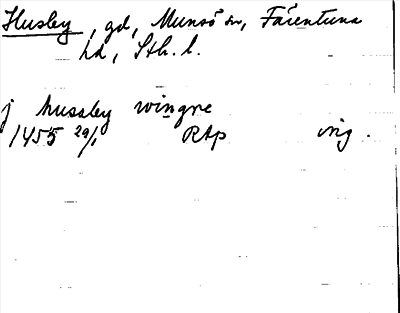 Husby, gd, Munsö sn, Färentuna
hd, Sth. l.
j hussby wingne
1455 29/1 RAp orig.